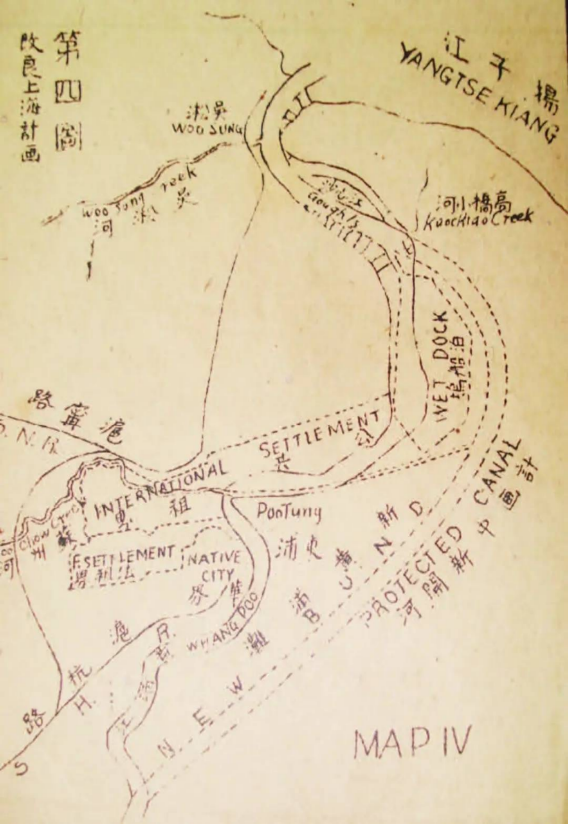 第四圖
改良上海計画
揚子江
YANGTSE KIANG
吳淞
WOOSUNG
Woo Sung
吳淞河
高橋小河
Kaochiao Creek
Gough Is
WET DOCK
泊船塢
滬寧路
S. N. R.
INTERNATIONAL SETTLEMENT
公共租界
Chow Creek
F. SETTLEMENT
法租界
NATIVE CITY
PooTung
浦東
WHANG POO
黃浦江
滬杭路
S. H. R.
NEW BUND
新黃浦灘
PROTECTED CANAL
計画中新開河
MAP IV